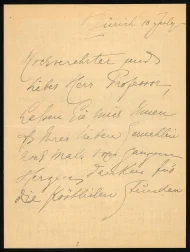 Zürich 10 July
Hochverehrter und
lieber Herr Professor,
Lassen Sie mich Ihnen
u Ihrer lieben Gemahlin
noch mals von ganzem
Herzen danken für
die köstlichen Stunden